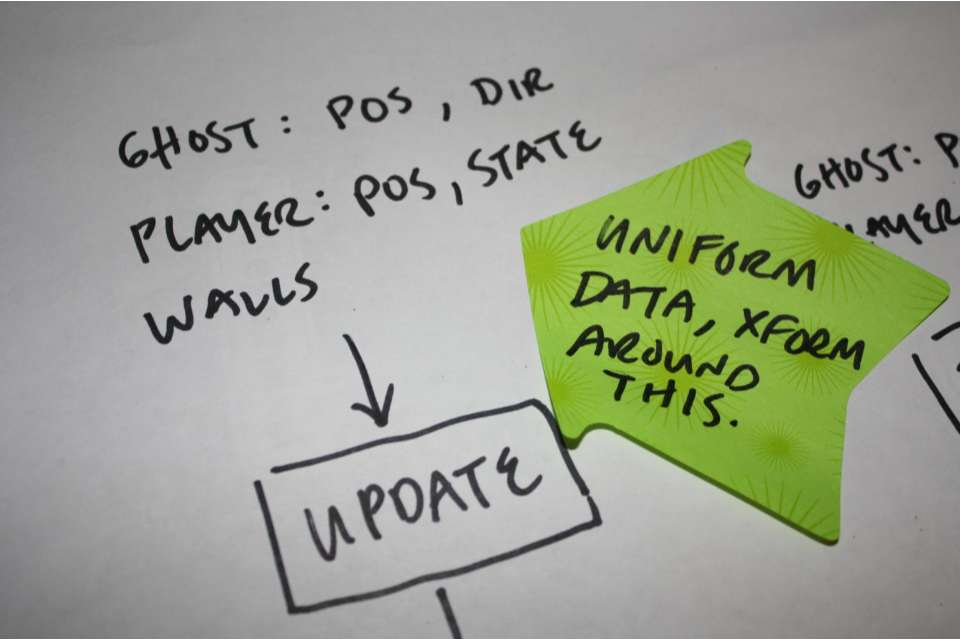 GHOST: POS, DIR
PLAYER: POS, STATE
WALLS
UPDATE
UNIFORM
DATA, XFORM
AROUND
THIS.
GHOST: